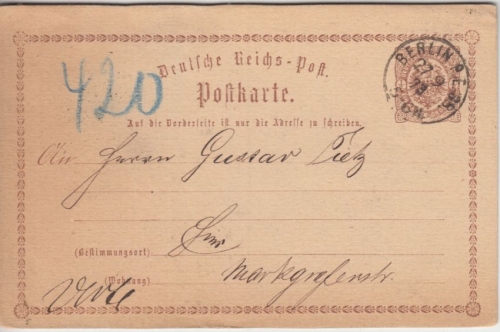 420
Deutsche Reichs-Post.
Postkarte.
BERLIN P.E.
27 9
73
Auf die Vorderseite ist nur die Adresse zu schreiben.
An Herrn Gustav Tietz
Hier
(Bestimmungsort)
Markgrafenstr.
(Wohnung)